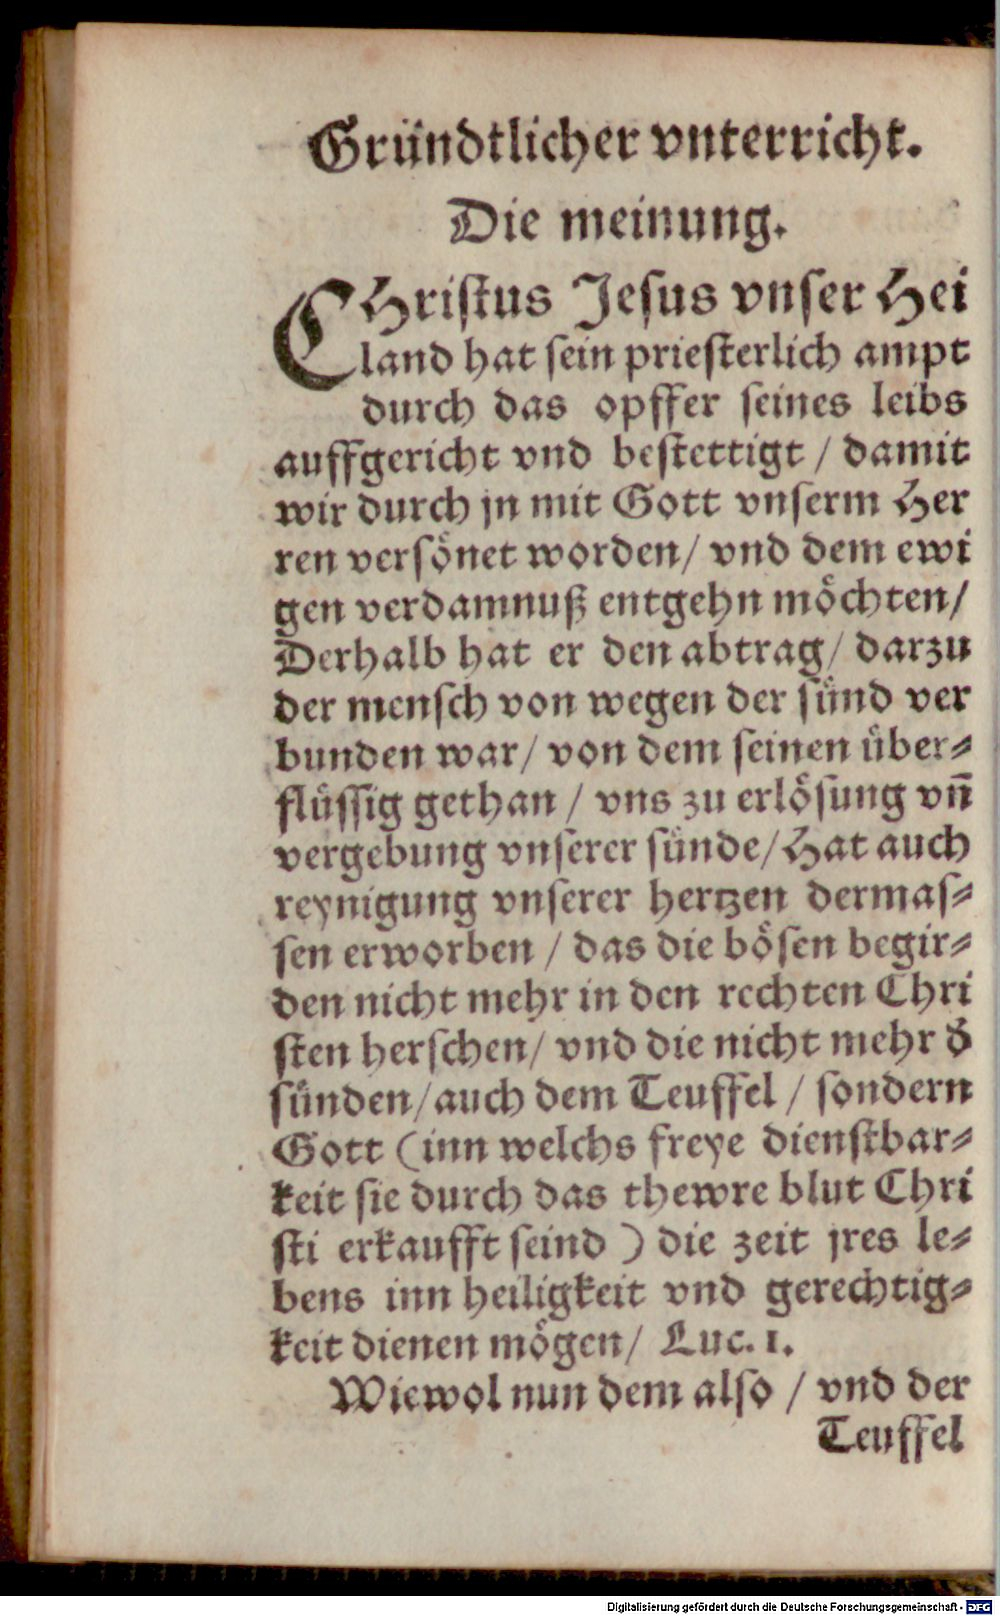 Gründtlicher vnterricht.
Die meinung.
CHriſtus Jeſus vnſer Hei
land hat ſein prieſterlich ampt
durch das opffer ſeines leibs
auffgericht vnd beſtettigt / damit
wir durch jn mit Gott vnſerm Her
ren verſoͤnet worden / vnd dem ewi
gen verdamnuß entgehn moͤchten /
Derhalb hat er den abtrag / darzu
der menſch von wegen der ſuͤnd ver
bunden war / von dem ſeinen uͤber⸗
fluͤſſig gethan / vns zu erloͤſung vñ
vergebung vnſerer ſuͤnde / Hat auch
reynigung vnſerer hertzen dermaſ⸗
ſen erworben / das die boͤſen begir⸗
den nicht mehr in den rechten Chri
ſten herſchen / vnd die nicht mehr d̕
ſuͤnden / auch dem Teuffel / ſondern
Gott (inn welchs freye dienſtbar⸗
keit ſie durch das thewre blut Chri
ſti erkaufft ſeind ) die zeit jres le⸗
bens inn heiligkeit vnd gerechtig⸗
keit dienen moͤgen / Luc. 1.
Wiewol nun dem alſo / vnd der
Teuffel
Digitalisierung gefördert durch die Deutsche Forschungsgemeinschaft - DFG